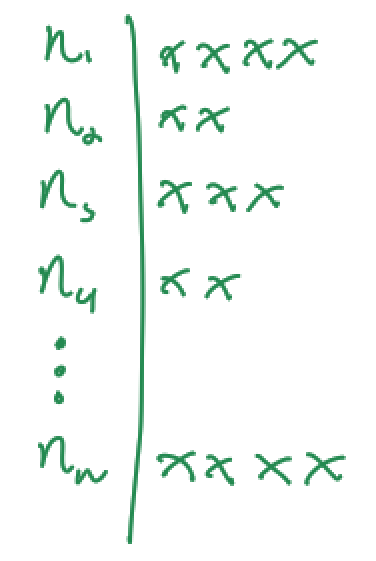 n₁ | x x x x
n₂ | x x
n₃ | x x x
n₄ | x x
⋮
nₙ | x x x x